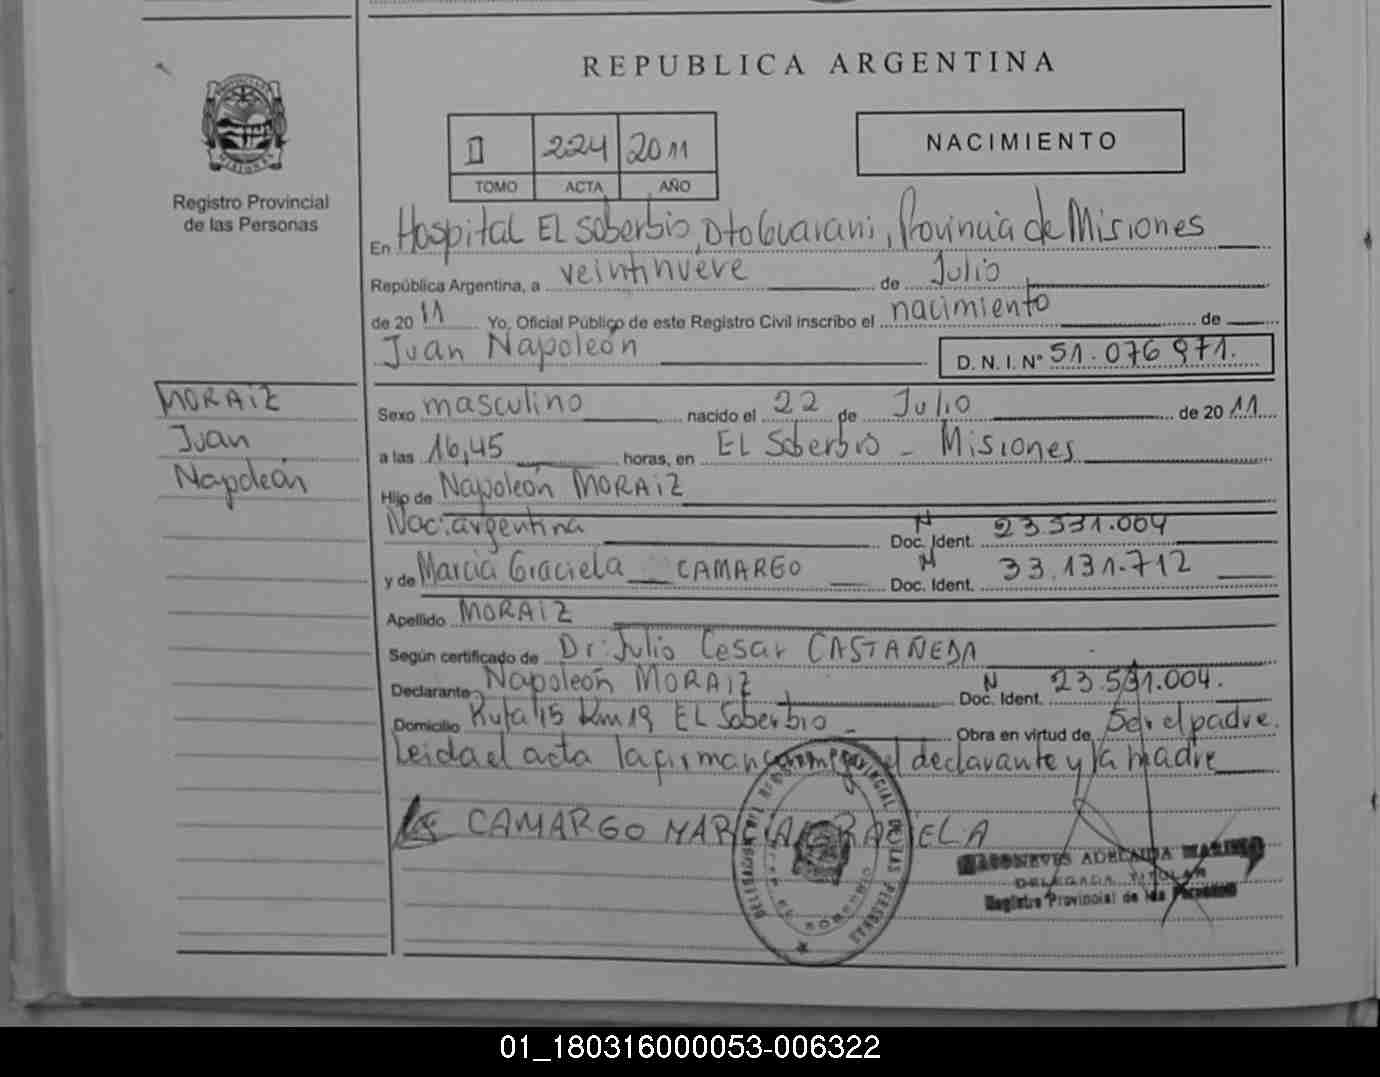 REPUBLICA ARGENTINA
Registro Provincial
de las Personas
II 224 2011
TOMO ACTA AÑO
NACIMIENTO
En Hospital EL Soberbio, Dto Guarani, Provincia de Misiones
República Argentina, a veintinueve de Julio
de 2011 Yo, Oficial Público de este Registro Civil inscribo el nacimiento de
Juan Napoleón D. N. I. Nº 51.076 971.
MORAIZ
Juan
Napoleón
Sexo masculino nacido el 22 de Julio de 2011
a las 16,45 horas, en EL Soberbio - Misiones
Hijo de Napoleón MORAIZ
Nac: argentina Doc. Ident. 23.531.004
y de Marcia Graciela CAMARGO Doc. Ident. 33.131.712
Apellido MORAIZ
Según certificado de Dr: Julio Cesar CASTAÑEDA
Declarante Napoleón MORAIZ Doc. Ident. 23.531.004.
Domicilio Ruta 15 Km 19 EL Soberbio - Obra en virtud de Ser el padre.
Leida el acta la firman conmigo el declarante y la madre
CAMARGO MARCIA GRACIELA
ADELAIDA
DELEGADA TITULAR
Registro Provincial de las Personas
01_180316000053-006322